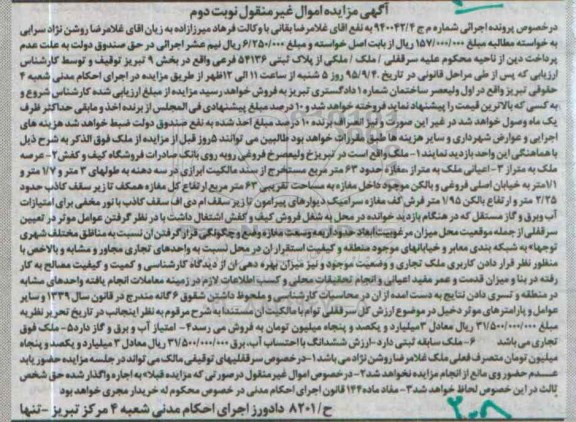 آگهی مزایده اموال غیر منقول نوبت دوم
درخصوص پرونده اجرائی شماره م ج ۹۴۰۰۴۲/۴ به نفع اقای غلامرضا بقائی با وکالت فرهاد میرزازاده به زیان اقای غلامرضا روشن نژاد سرابی
به خواسته مطالبه مبلغ ۱۵۷/۰۰۰/۰۰۰ ریال از بابت اصل خواسته و مبلغ ۶/۲۵۰/۰۰۰ ریال نیم عشر اجرائی در حق صندوق دولت به علت عدم
پرداخت دین از ناحیه محکوم علیه سرقفلی / ملک / ملکی از پلاک ثبتی ۵۴۱۳۶ فرعی واقع در بخش ۹ تبریز توقیف و توسط کارشناس
ارزیابی که پس از طی مراحل قانونی در تاریخ ۹۵/۹/۴ روز ۵ شنبه از ساعت ۱۱ الی ۱۲ ظهر از طریق مزایده در اجرای احکام مدنی شعبه ۴
حقوقی تبریز واقع در اول ولیعصر ساختمان شماره ۱ دادگستری تبریز به فروش خواهد رسید مزایده از مبلغ ارزیابی شده کارشناس شروع و
به کسی که بالاترین قیمت را پیشنهاد نماید فروخته خواهد شد و ۱۰ درصد مبلغ پیشنهادی فی المجلس از برنده اخذ و مابقی حداکثر ظرف
یک ماه وصول خواهد شد در غیر این صورت و نیز انصراف برنده ۱۰ درصد مبلغ اخذ شده به نفع صندوق دولت ضبط خواهد شد هزینه های
اجرایی و عوارض شهرداری و سایر هزینه ها طبق مقررات خواهد بود طالبین می توانند ۵ روز قبل از مزایده از ملک فوق الذکر به شرح ذیل
با هماهنگی این واحد بازدید نمایند ۱- ملک واقع است در تبریز خ ولیعصر خ فروغی روبه روی بانک صادرات فروشگاه کیف و کفش ۲- عرصه
ملک به متراژ ۳- اعیانی ملک به متراژ مغازه حدود ۶۳ متر مربع مستخرج از سند مالکیت ابرازی در سه دهنه به طولهای ۳ متر و ۱/۷ متر و
۱/۱ متر به خیابان اصلی فروغی و بالکن موجود داخل مغازه به مساحت تقریبی ۶۳ متر مربع ارتفاع کل مغازه همکف تا زیر سقف کاذب حدود
۲/۲۵ متر و ارتفاع بالکن ۱/۹۵ متر فرش کف مغازه سرامیک دیوارهای پیرامون تا زیر سقف ام دی اف سقف کاذب با نور مخفی برای امتیازات
آب وبرق و گاز مستقل که در هنگام بازدید خوانده در محل به شغل فروش کیف و کفش اشتغال داشت با در نظر گرفتن عوامل موثر در تعیین
سرقفلی از جمله موقعیت محل میزان مرغوبیت ابعاد خیابان وسعت مغازه وضع و چگونگی قرار گرفتن ان نسبت به مناطق مختلف شهری
توجها به شبکه بندی معابر و خیابانهای موجود منطقه و کیفیت استقرار ان در محل نسبت به واحدهای تجاری مجاور و مشابه و بالاخص با
منظور نظر قرار دادن کاربری ملک تجاری و وضعیت موجود و نیز میزان بهره دهی ان از دیدگاه کارشناسی و کمیت و کیفیت مصالح به کار
رفته در بنا و میزان قدمت و عمر مفید اعیانی و انجام تحقیقات محلی و کسب اطلاعات لازم در زمینه معاملات انجام یافته واحدهای مشابه
در منطقه و تسری دادن نتایج به دست امده از ان در محاسبات کارشناسی و ملحوظ داشتن شقوق ۶ گانه مندرج در قانون سال ۱۳۳۹ و سایر
عوامل و پارامترهای موثر دخیل در موضوع ارزش کل سرقفلی توام با مالکیت ان مستندا به شرح مرقوم به نظر اینجانب در تاریخ تحریر نظریه
مبلغ ۳۱/۵۰۰/۰۰۰/۰۰۰ ریال معادل ۳ میلیارد و یکصد و پنجاه میلیون تومان به فروش می رسد ۴- امتیاز آب و برق و گاز دارد ۵- ملک فوق
تجاری می باشد ۶- ملک سابقه ثبتی دارد - ارزش ششدانگ با احتساب آب، برق ۳۱/۵۰۰/۰۰۰/۰۰۰ ریال معادل ۳ میلیارد و یکصد و پنجاه
میلیون تومان متصرف فعلی ملک غلامرضا روشن نژاد می باشد ۱- درخصوص سرقفلیهای توقیفی مالک می تواند در جلسه مزایده حضور یابد
عدم حضور وی مانع از انجام مزایده نخواهد شد ۲- درخصوص اموال غیر منقول در صورتی که مزایده قبلا به اجاره واگذار شده حق شخص
ثالث در این خصوص لحاظ خواهد شد ۳- مفاد ماده ۱۴۴ قانون اجرای احکام مدنی در خصوص محکوم له خریدار مجری خواهد بود
ح/۸۲۰۱ دادورز اجرای احکام مدنی شعبه ۴ مرکز تبریز - تنها